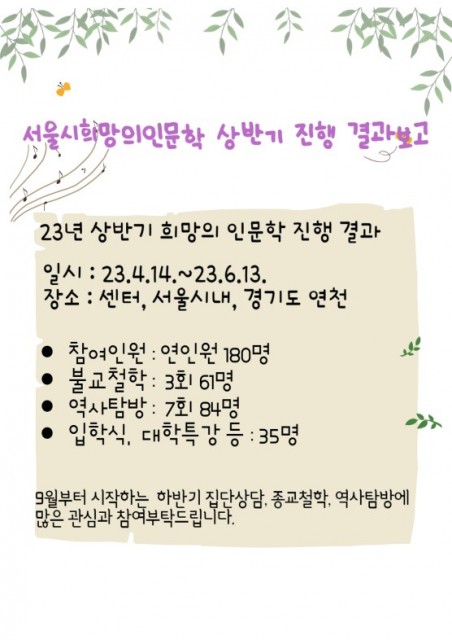 서울시희망의인문학 상반기 진행 결과보고
23년 상반기 희망의 인문학 진행 결과
일시 : 23.4.14.~23.6.13.
장소 : 센터, 서울시내, 경기도 연천
● 참여인원 : 연인원 180명
● 불교철학 : 3회 61명
● 역사탐방 : 7회 84명
● 입학식, 대학특강 등 : 35명
9월부터 시작하는 하반기 집단상담, 종교철학, 역사탐방에
많은 관심과 참여부탁드립니다.